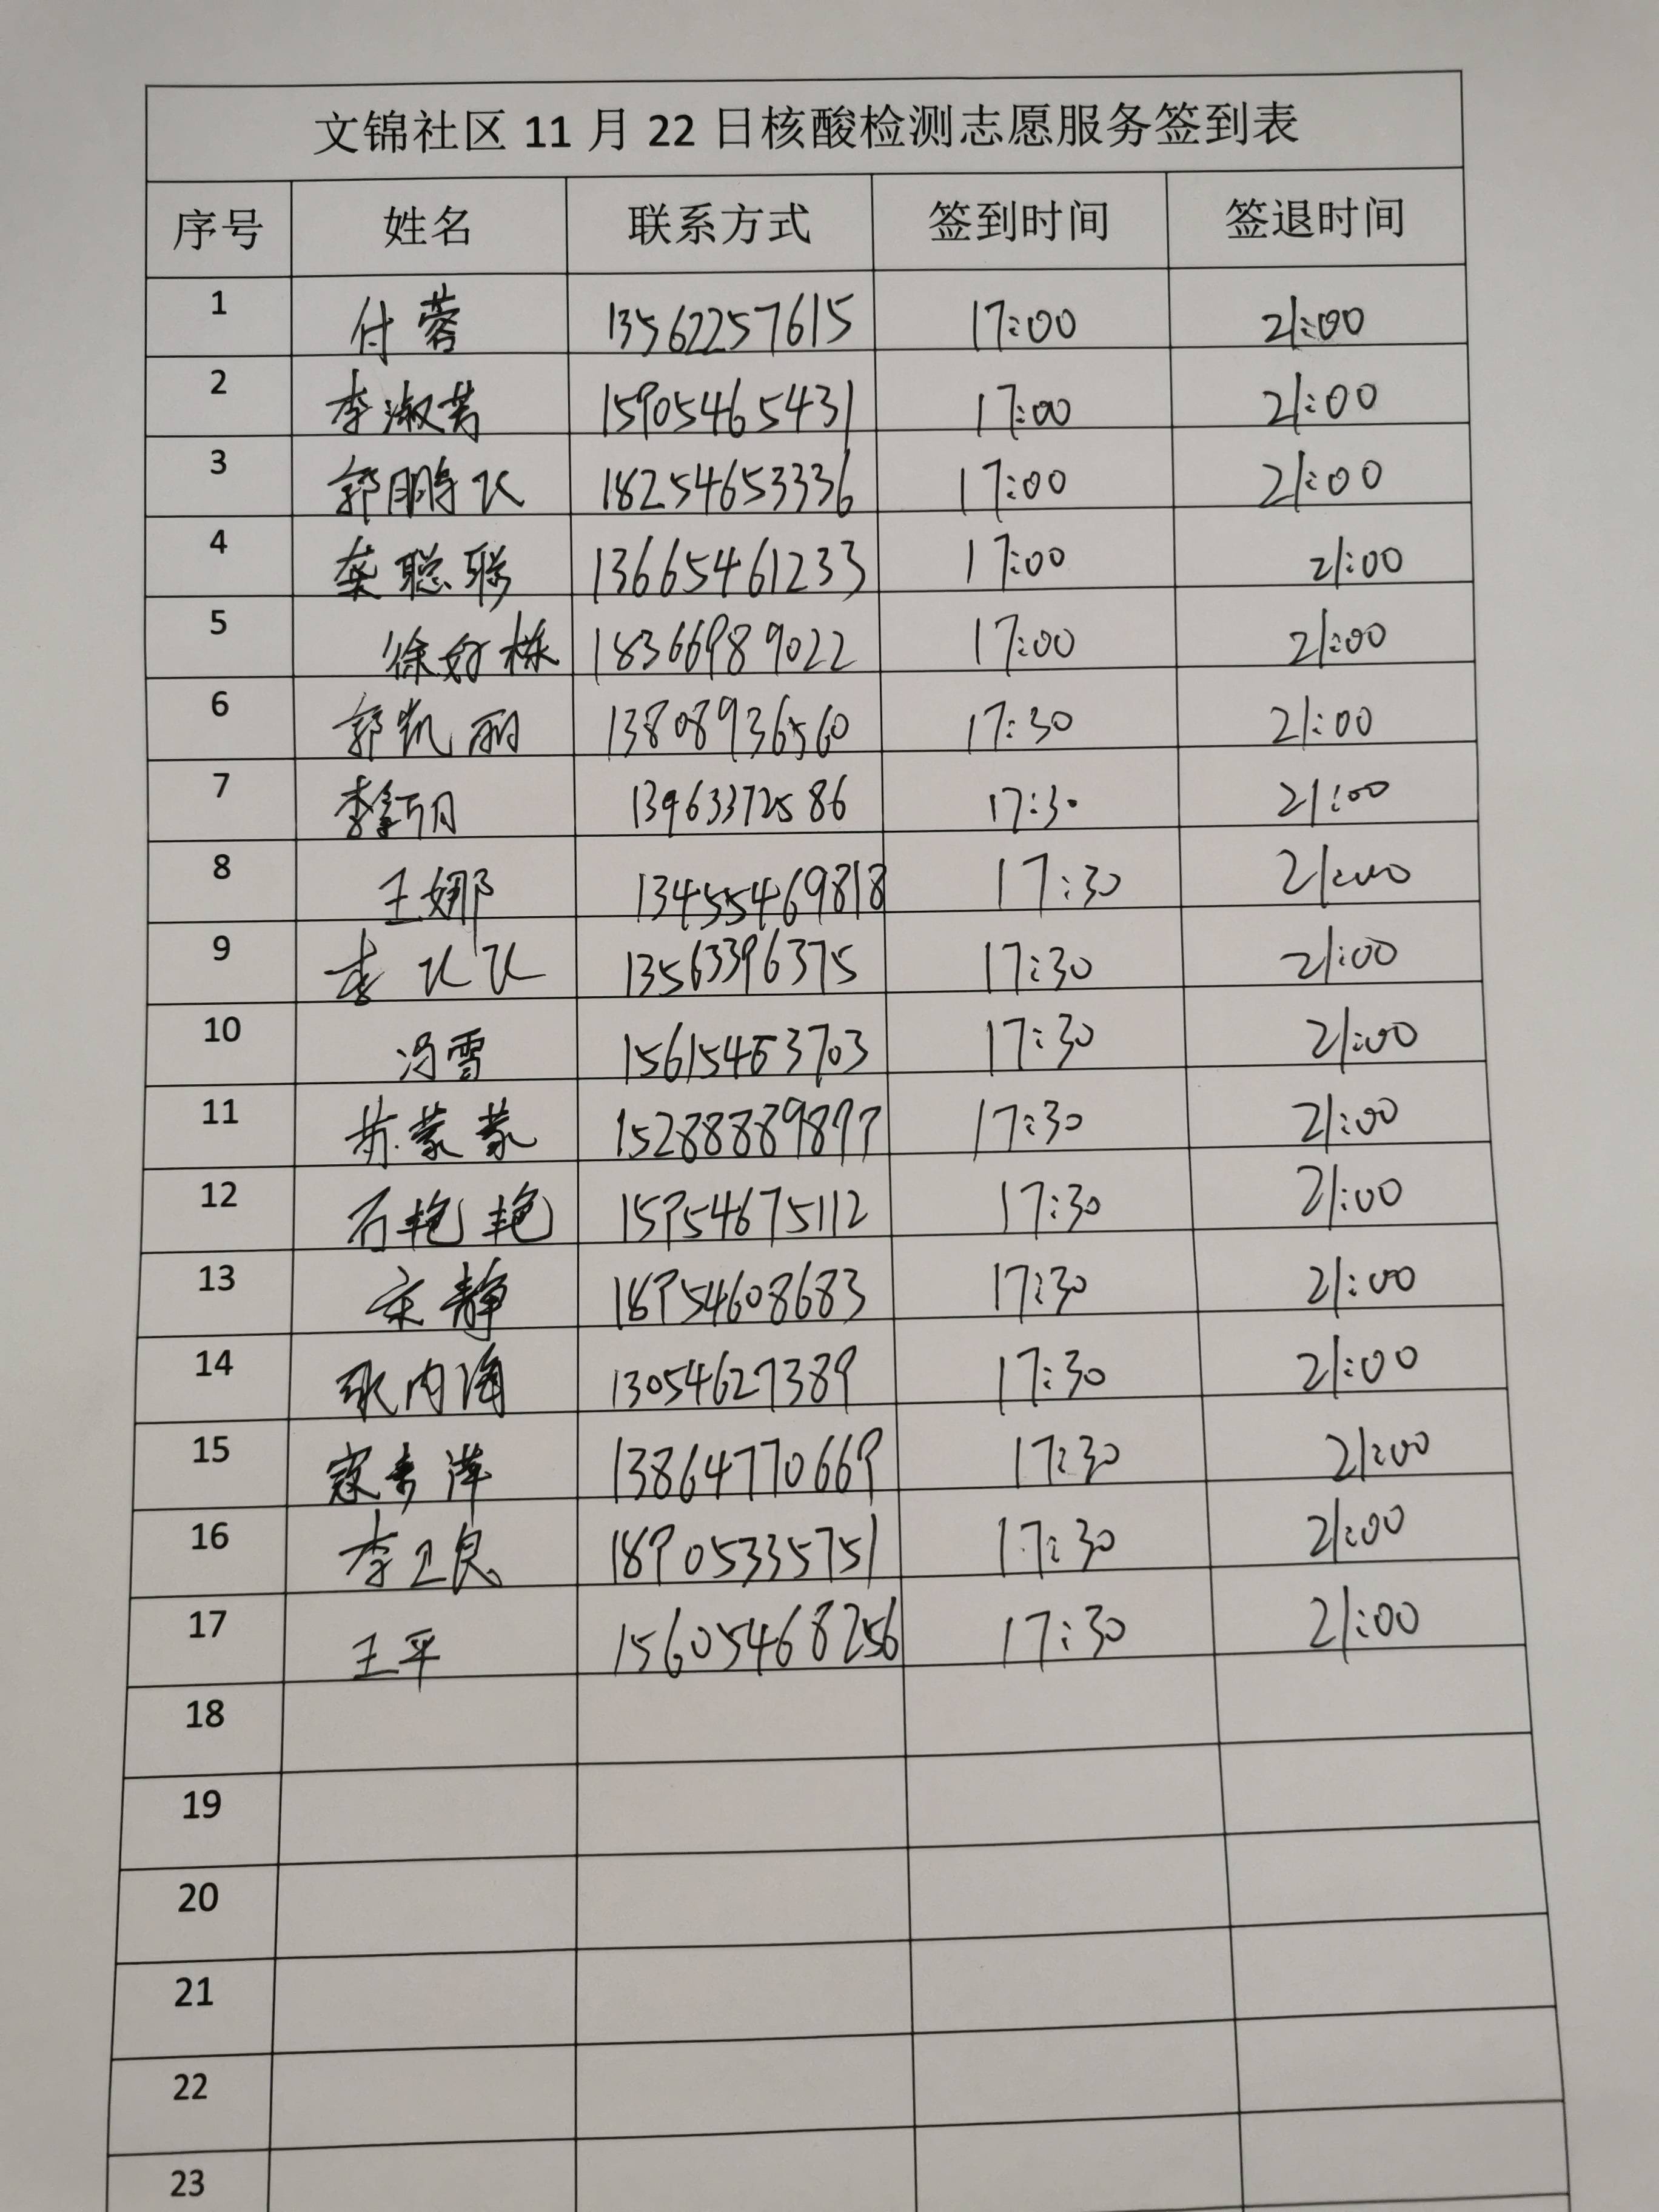 文锦社区11月22日核酸检测志愿服务签到表
序号 姓名 联系方式 签到时间 签退时间
1 付蓉 13562257615 17:00 21:00
2 李淑芳 15905465431 17:00 21:00
3 郭鹏飞 18254653336 17:00 21:00
4 綦聪聪 13665461233 17:00 21:00
5 徐好栋 18366989022 17:00 21:00
6 郭凯丽 13808936560 17:30 21:00
7 李 13963372586 17:30 21:00
8 王娜 13455469818 17:30 21:00
9 李飞飞 13563396375 17:30 21:00
10 冯雪 17:30 21:00
11 蒙蒙 17:30 21:00
12 石艳艳 15954675112 17:30 21:00
13 宋静 18954608683 17:30 21:00
14 13054627389 17:30 21:00
15 寇秀萍 13864770669 17:30 21:00
16 李卫良 18905335751 17:30 21:00
17 王平 15605468256 17:30 21:00
18
19
20
21
22
23